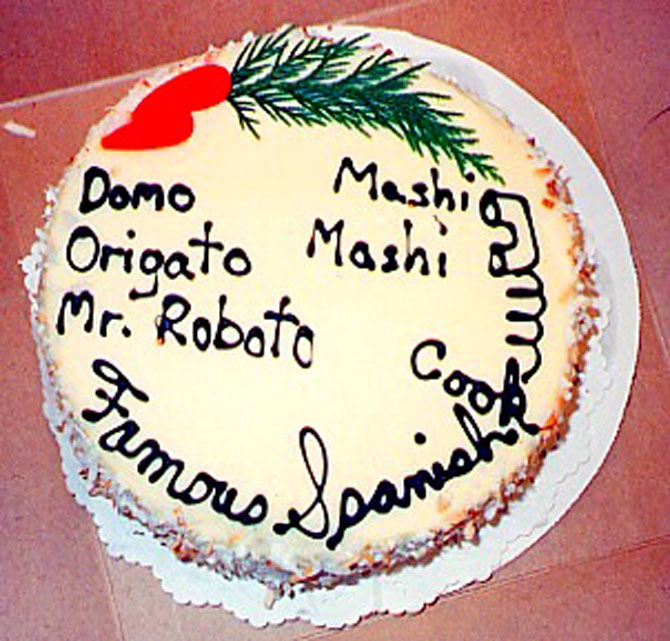 Domo
Origato
Mr. Roboto
Mashi
Mashi
Cook
Famous Spanish